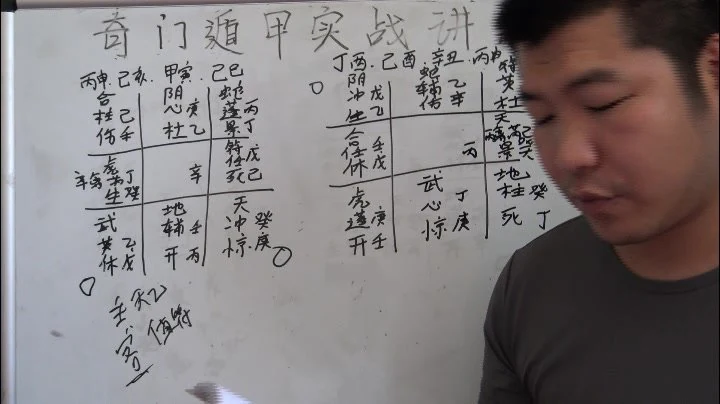 奇门遁甲实战讲
丙申 己亥 甲寅 己巳
合 己
柱 壬
伤
阴
心 庚
杜 乙
蛇
蓬 丙
景 丁
虎
芮 丁
生 癸
辛禽
辛
符
任 戊
死 己
武
英 乙
休 戊
地
辅 壬
开 丙
天
冲 癸
惊 庚
主 天乙
客 值符
丁酉 己酉 辛丑 丙申
阴
冲 戊
生 乙
蛇
辅 乙
伤 辛
符
英
杜
合
任 壬
休 戊
丙
天
芮
景
虎
蓬 庚
开 壬
武
心 丁
惊 庚
地
柱 癸
死 丁